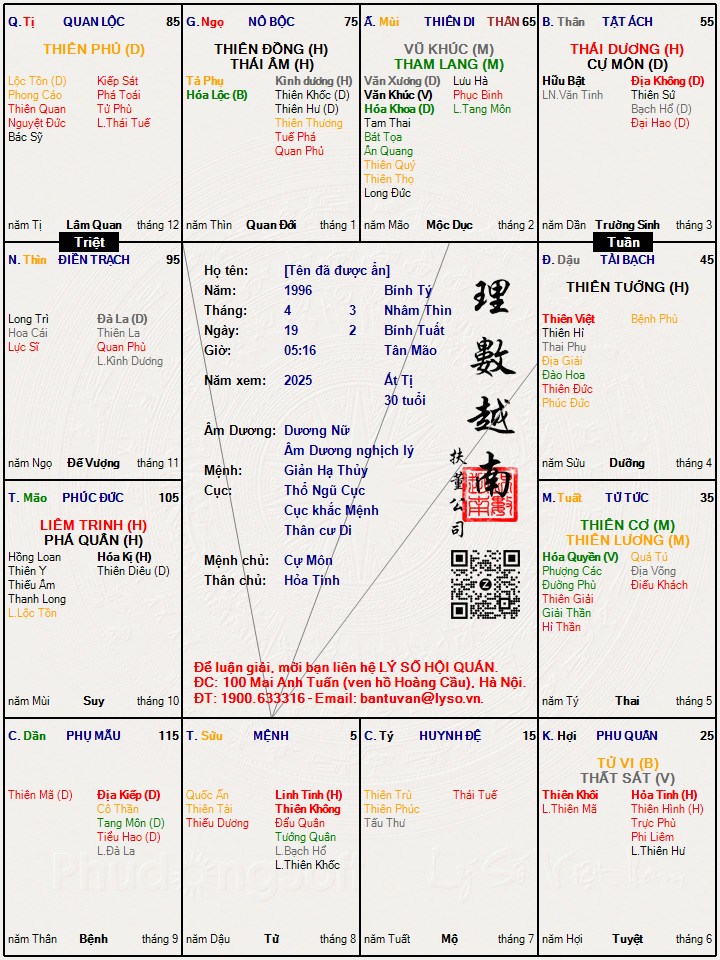 Q. Tị QUAN LỘC 85
THIÊN PHỦ (D)
Lộc Tồn (D) Kiếp Sát
Phong Cáo Phá Toái
Thiên Quan Tử Phù
Nguyệt Đức L.Thái Tuế
Bác Sỹ
năm Tị Lâm Quan tháng 12
G. Ngọ NÔ BỘC 75
THIÊN ĐỒNG (H)
THÁI ÂM (H)
Tả Phụ Kình dương (H)
Hóa Lộc (B) Thiên Khốc (D)
Thiên Hư (D)
Thiên Thương
Tuế Phá
Quan Phủ
năm Thìn Quan Đới tháng 1
Ấ. Mùi THIÊN DI THÂN 65
VŨ KHÚC (M)
THAM LANG (M)
Văn Xương (D) Lưu Hà
Văn Khúc (V) Phục Binh
Hóa Khoa (D) L.Tang Môn
Tam Thai
Bát Tọa
Ân Quang
Thiên Quý
Thiên Thọ
Long Đức
năm Mão Mộc Dục tháng 2
B. Thân TẬT ÁCH 55
THÁI DƯƠNG (H)
CỰ MÔN (D)
Hữu Bật Địa Không (D)
LN.Văn Tinh Thiên Sứ
Bạch Hổ (D)
Đại Hao (D)
năm Dần Trường Sinh tháng 3
Triệt
Tuần
N. Thìn ĐIỀN TRẠCH 95
Long Trì Đà La (D)
Hoa Cái Thiên La
Lực Sĩ Quan Phù
L.Kình Dương
năm Ngọ Đế Vượng tháng 11
Họ tên: [Tên đã được ẩn]
Năm: 1996 Bính Tý
Tháng: 4 3 Nhâm Thìn
Ngày: 19 2 Bính Tuất
Giờ: 05:16 Tân Mão
Năm xem: 2025 Ất Tị
30 tuổi
Âm Dương: Dương Nữ
Âm Dương nghịch lý
Mệnh: Giản Hạ Thủy
Cục: Thổ Ngũ Cục
Cục khắc Mệnh
Thân cư Di
Mệnh chủ: Cự Môn
Thân chủ: Hỏa Tinh
理數越南
扶董公司
Để luận giải, mời bạn liên hệ LÝ SỐ HỘI QUÁN.
ĐC: 100 Mai Anh Tuấn (ven hồ Hoàng Cầu), Hà Nội.
ĐT: 1900.633316 - Email: bantuvan@lyso.vn.
Đ. Dậu TÀI BẠCH 45
THIÊN TƯỚNG (H)
Thiên Việt Bệnh Phù
Thiên Hỉ
Thai Phụ
Địa Giải
Đào Hoa
Thiên Đức
Phúc Đức
năm Sửu Dưỡng tháng 4
T. Mão PHÚC ĐỨC 105
LIÊM TRINH (H)
PHÁ QUÂN (H)
Hồng Loan Hóa Kị (H)
Thiên Y Thiên Diêu (D)
Thiếu Âm
Thanh Long
L.Lộc Tồn
năm Mùi Suy tháng 10
M. Tuất TỬ TỨC 35
THIÊN CƠ (M)
THIÊN LƯƠNG (M)
Hóa Quyền (V) Quả Tú
Phượng Các Địa Võng
Đường Phù Điếu Khách
Thiên Giải
Giải Thần
Hỉ Thần
năm Tý Thai tháng 5
C. Dần PHỤ MẪU 115
Thiên Mã (D) Địa Kiếp (D)
Cô Thần
Tang Môn (D)
Tiểu Hao (D)
L.Đà La
năm Thân Bệnh tháng 9
T. Sửu MỆNH 5
Quốc Ấn Linh Tinh (H)
Thiên Tài Thiên Không
Thiếu Dương Đẩu Quân
Tướng Quân
L.Bạch Hổ
L.Thiên Khốc
năm Dậu Tử tháng 8
C. Tý HUYNH ĐỆ 15
Thiên Trù Thái Tuế
Thiên Phúc
Tấu Thư
năm Tuất Mộ tháng 7
K. Hợi PHU QUÂN 25
TỬ VI (B)
THẤT SÁT (V)
Thiên Khôi Hỏa Tinh (H)
L.Thiên Mã Thiên Hình (H)
Trực Phù
Phi Liêm
L.Thiên Hư
năm Hợi Tuyệt tháng 6